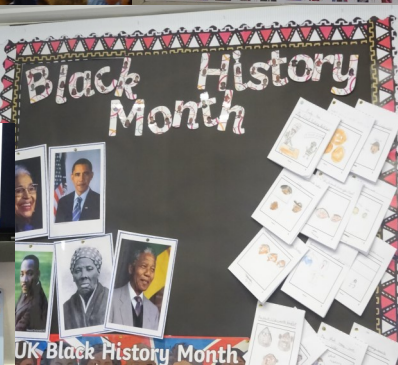 Black History
Month
UK Black History Month